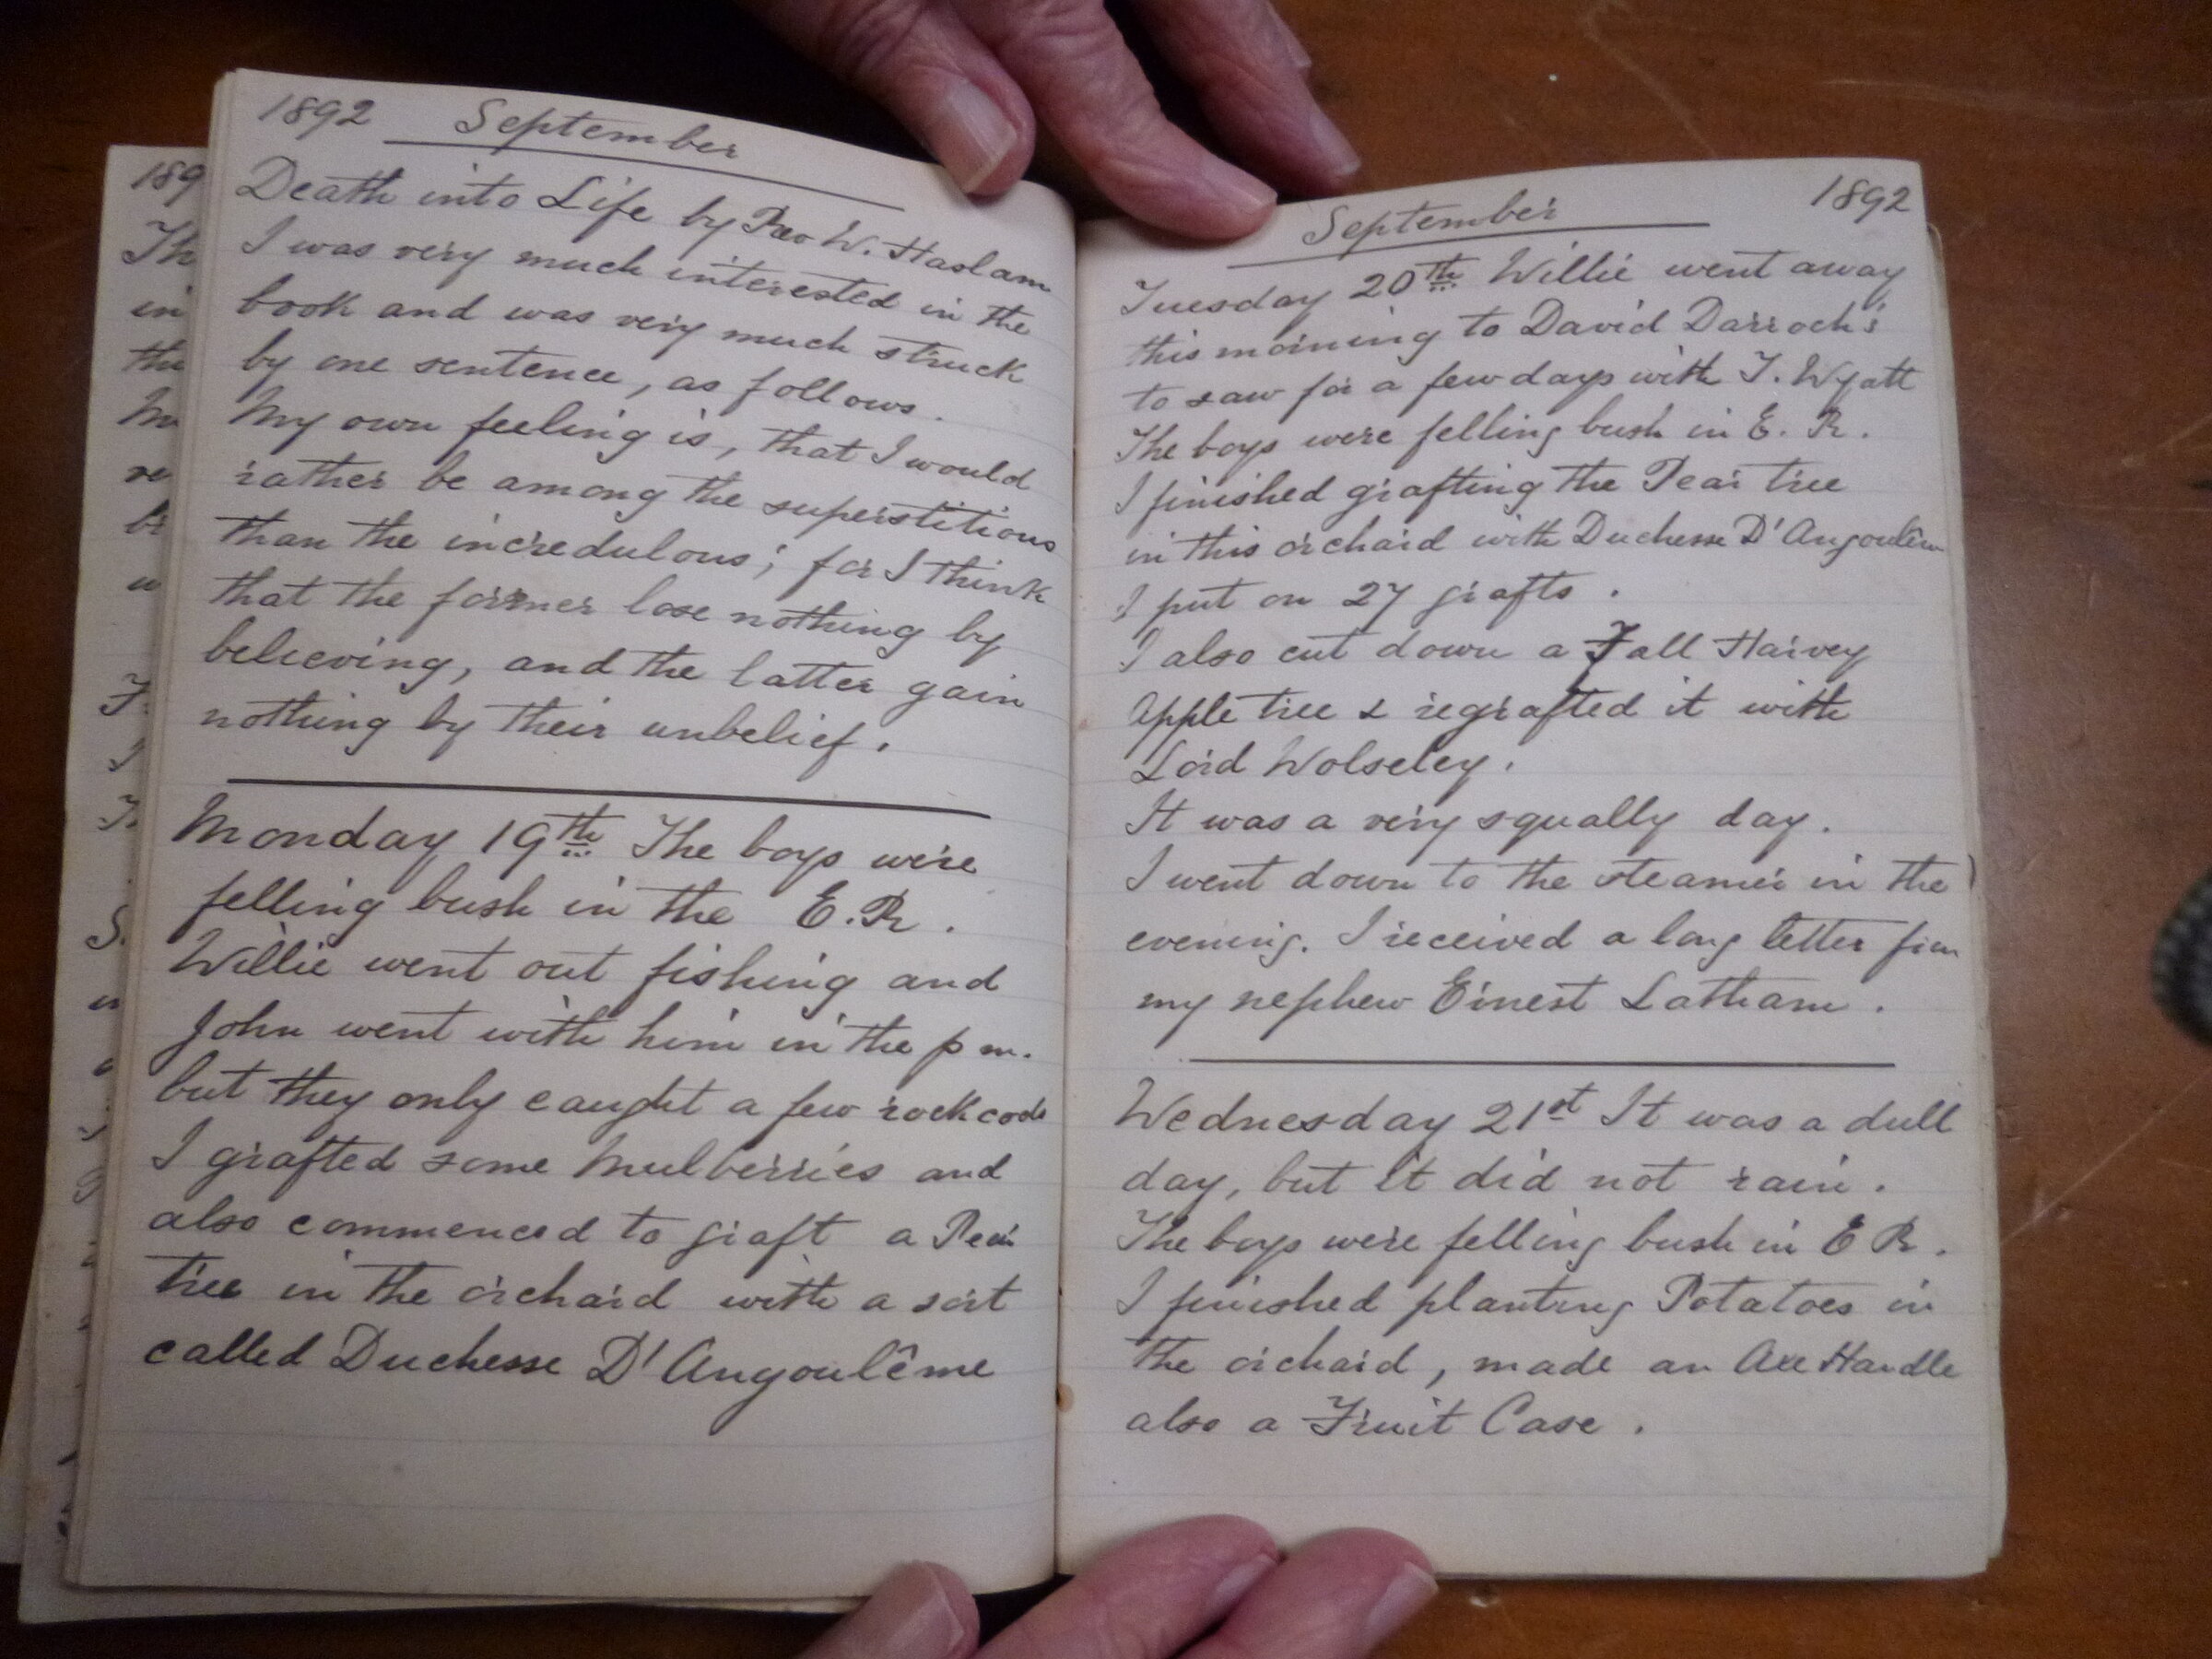 1892 September
Death into Life by Rev W. Haslam
I was very much interested in the
book and was very much struck
by one sentence, as follows.
My own feeling is, that I would
rather be among the superstitious
than the incredulous; for I think
that the former lose nothing by
believing, and the latter gain
nothing by their unbelief.
Monday 19th The boys were
felling bush in the E.R.
Willie went out fishing and
John went with him in the p m.
but they only caught a few rock cods
I grafted some Mulberries and
also commenced to graft a Pear
tree in the orchard with a sort
called Duchesse D'Angoulême
September 1892
Tuesday 20th Willie went away
this morning to David Darroch's
to saw for a few days with T. Wyatt
The boys were felling bush in E. R.
I finished grafting the Pear tree
in this orchard with Duchesse D'Angoulême
I put on 27 grafts.
I also cut down a Fall Harvey
Apple tree & regrafted it with
Lord Wolseley.
It was a very squally day.
I went down to the steamer in the
evening. I received a long letter from
my nephew Ernest Latham.
Wednesday 21st It was a dull
day, but it did not rain.
The boys were felling bush in E R.
I finished planting Potatoes in
the orchard, made an Axe Handle
also a Fruit Case.